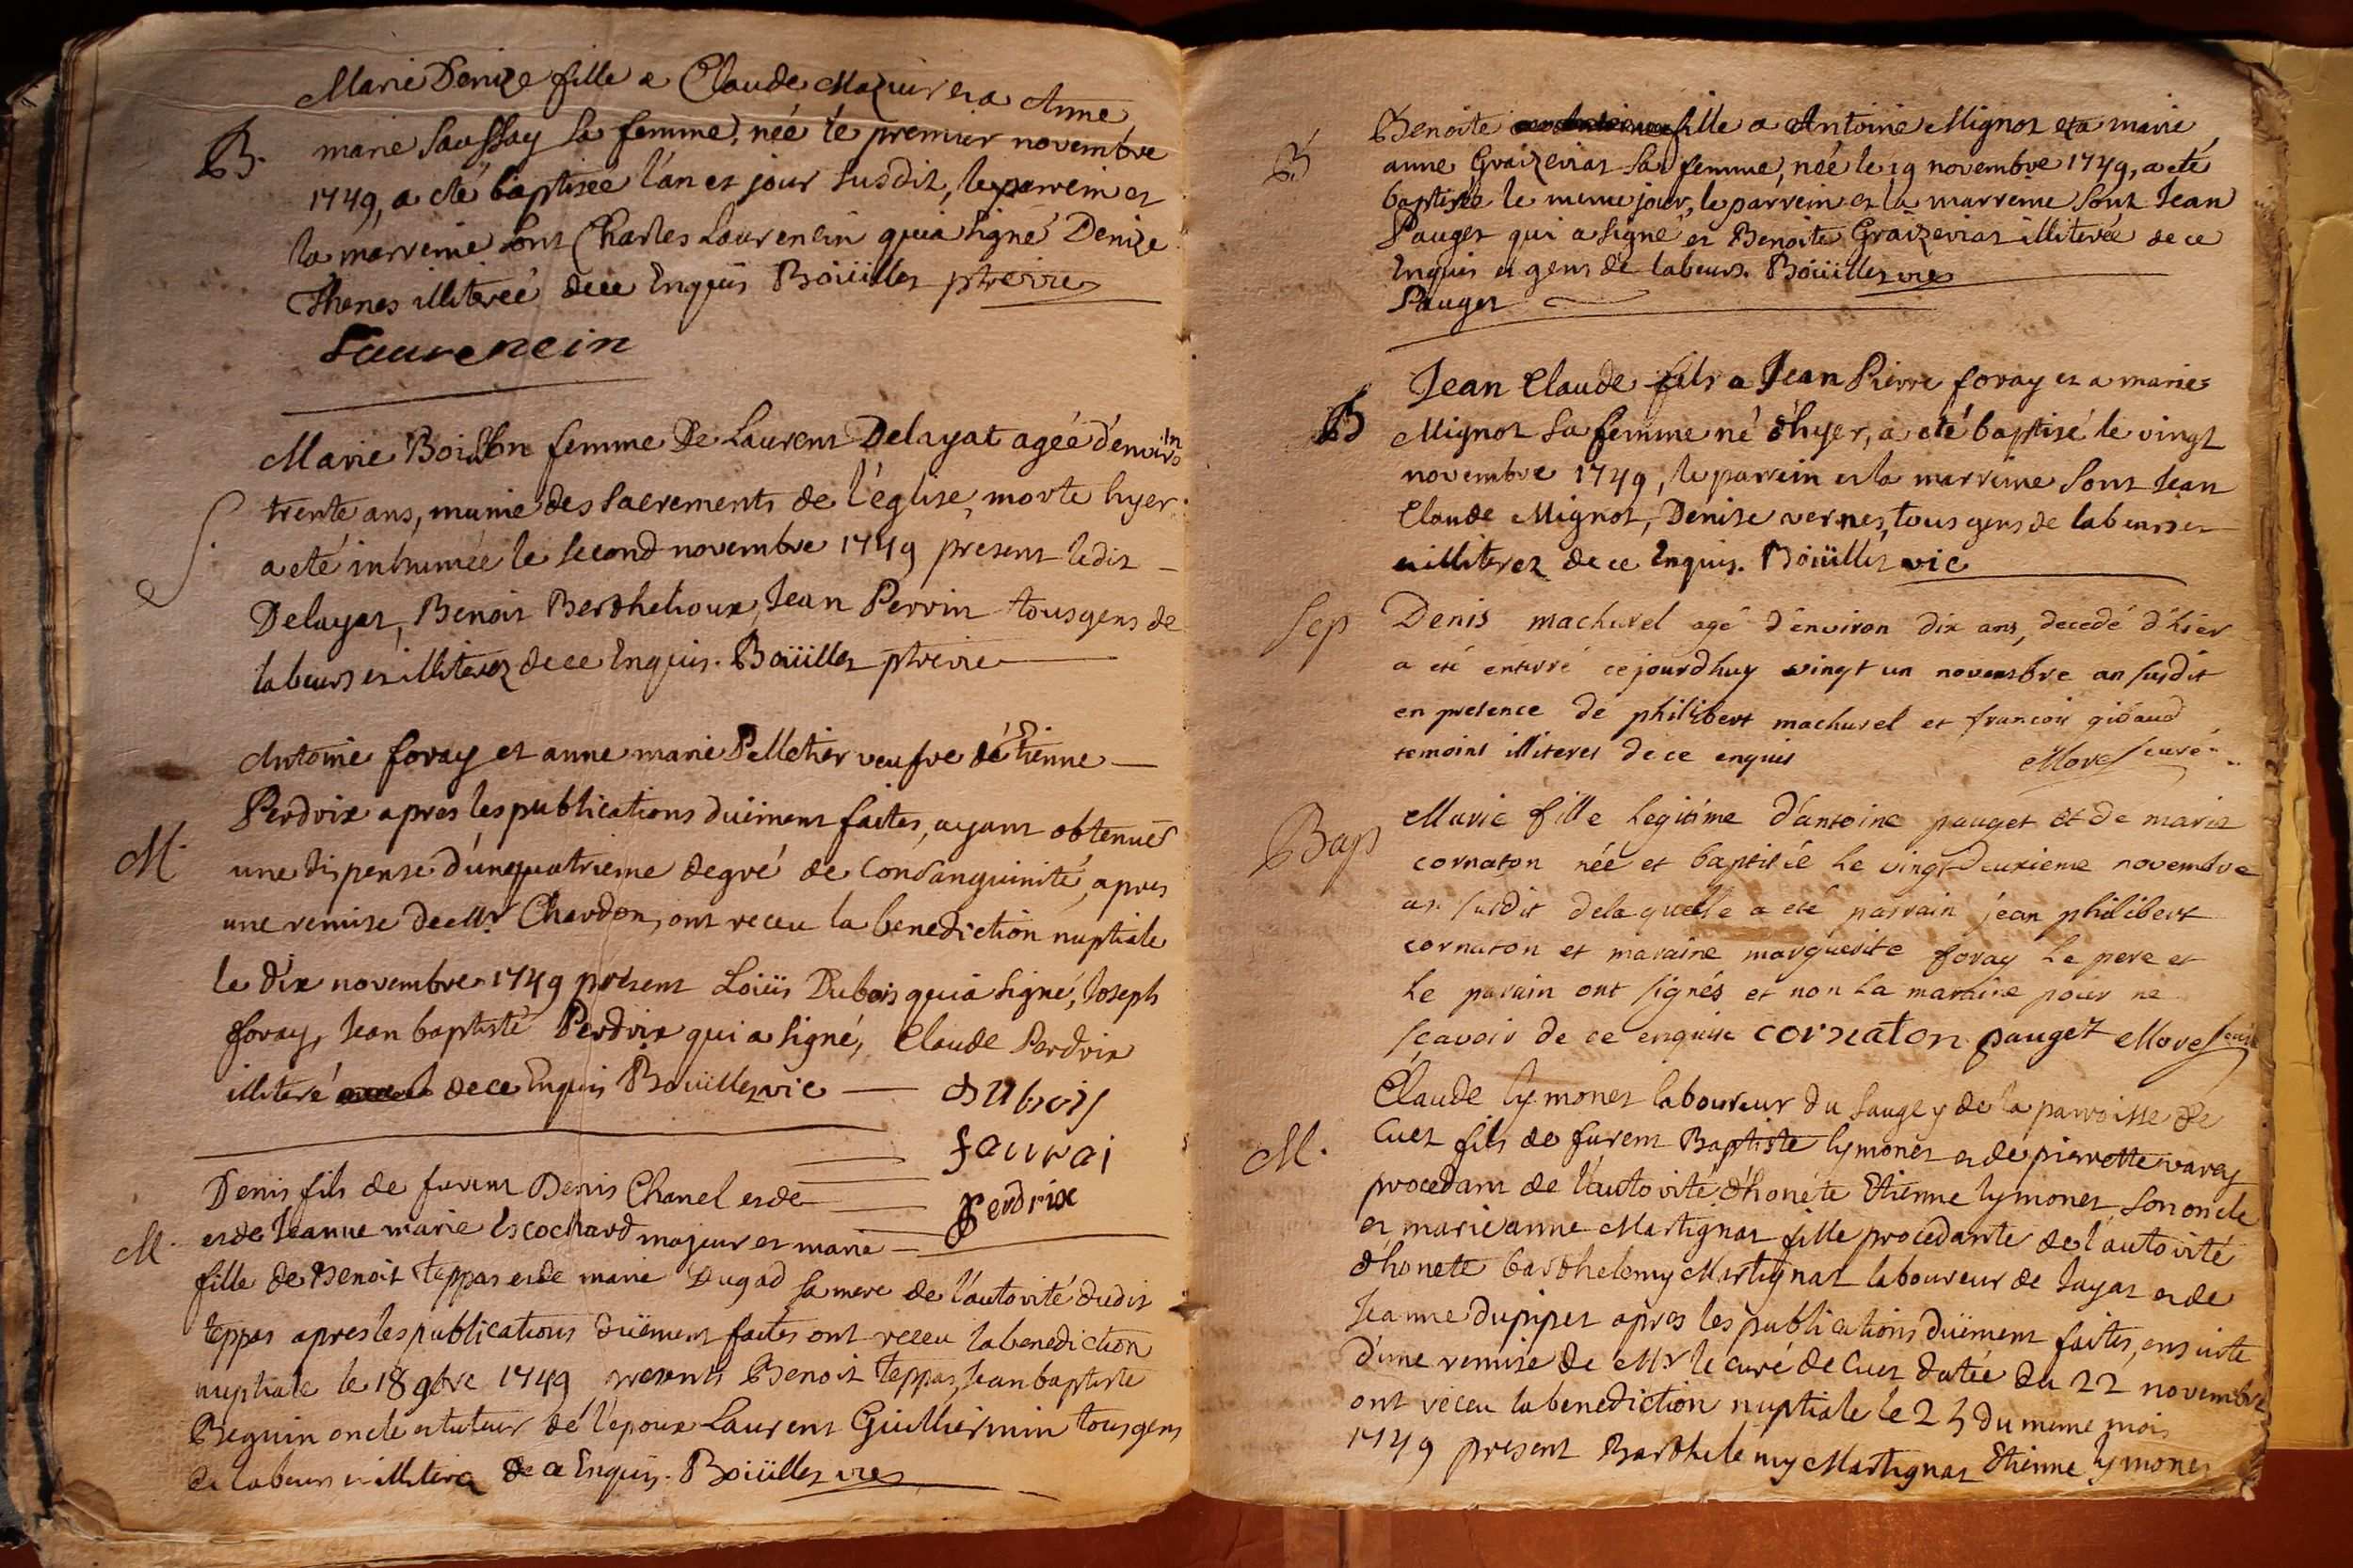 Marie Denize fille a Claude Mazuir et a Anne
B. marie Saussay sa femme, née le premier novembre
1749, a eté baptisée l'an et jour susdit, le parrein et
la marreine sont Charles Laurencin qui a signé Denize
Thenes illiterée de ce Enquis Boüillet ptre vic
Laurencin
Marie Boisson femme De Laurent Delayat agée d'environ
S. trente ans, munie des sacrements de l'église, morte hyer
a eté inhumée le second novembre 1749 present ledit
Delayat, Benoit Berthelioux, Jean Perrin tous gens de
labeurs et illiterez de ce Enquis. Boüillet ptre vic
Antoine foray et anne marie Pelletier veufve d'étienne
Perdrix apres les publications düement faites, ayant obtenues
M. une dispense d'un quatrieme degré de consanguinité, apres
une remise de Mr Chardon, ont receu la benediction nuptiale
le dix novembre 1749 present Loüis Dubois qui a signé, Joseph
foray, Jean baptiste Perdrix qui a signé, Claude Perdrix
illiteré de ce Enquis Boüillet vic
dubois
faurai
perdrix
Denis fils de furent Denis Chanel et de
M. et de Jeanne marie Escochard majeur et marie
fille de Benoit teppat et de marie Dugad sa mere de l'autorité dudit
teppat apres les publications düement faites ont receu la benediction
nuptiale le 18 9bre 1749 presents Benoit teppat, Jean baptiste
Beguin oncle et tuteur de l'époux Laurent Guilliermin tous gens
de labeurs et illiterez de ce Enquis. Boüillet vic
B Benoite fille a Antoine Mignot et a marie
anne Graizeviat sa femme, née le 19 novembre 1749, a eté
baptisée le meme jour, le parrein et la marreine sont Jean
Pauget qui a signé et Benoite Graizeviat illiterée de ce
Enquis et gens de labeurs. Boüillet vic
Pauget
Jean Claude fils a Jean Pierre foray et a marie
B Mignot sa femme né d'hyer, a eté baptisé le vingt
novembre 1749, le parrein et la marreine sont Jean
Claude Mignot, Denise vernes, tous gens de labeurs et
illiterez de ce Enquis. Boüillet vic
Sep Denis machurel agé d'environ dix ans, decedé d'hier
a eté enterré cejourdhuy vingt un novembre an susdit
en presence de philibert machurel et francois gibaud
temoins illiteres de ce enquis Morel curé
Bap Marie fille legitime d'antoine pauget et de marie
cornaton née et baptisée le vingt deuxieme novembre
an susdit de laquelle a eté parrain jean philibert
cornaton et maraine marguerite foray le pere et
le parain ont signés et non la maraine pour ne
sçavoir de ce enquise cornaton pauget Morel curé
Claude lymonet laboureur du Saugey de la parroisse de
M. Cuet fils de furent Baptiste lymonet et de pierrette varey
procedant de l'autorité d'honéte Etienne lymonet son oncle
et marie anne Martignat fille procedante de l'autorité
d'honete barthelemy Martignat laboureur de Jayat et de
Jeanne dupipet apres les publications düement faites, ensuite
d'une remise de Mr le curé de Cuet datée du 22 novembre
ont receu la benediction nuptiale le 25 du meme mois
1749 present Barthelemy Martignat Etienne lymonet